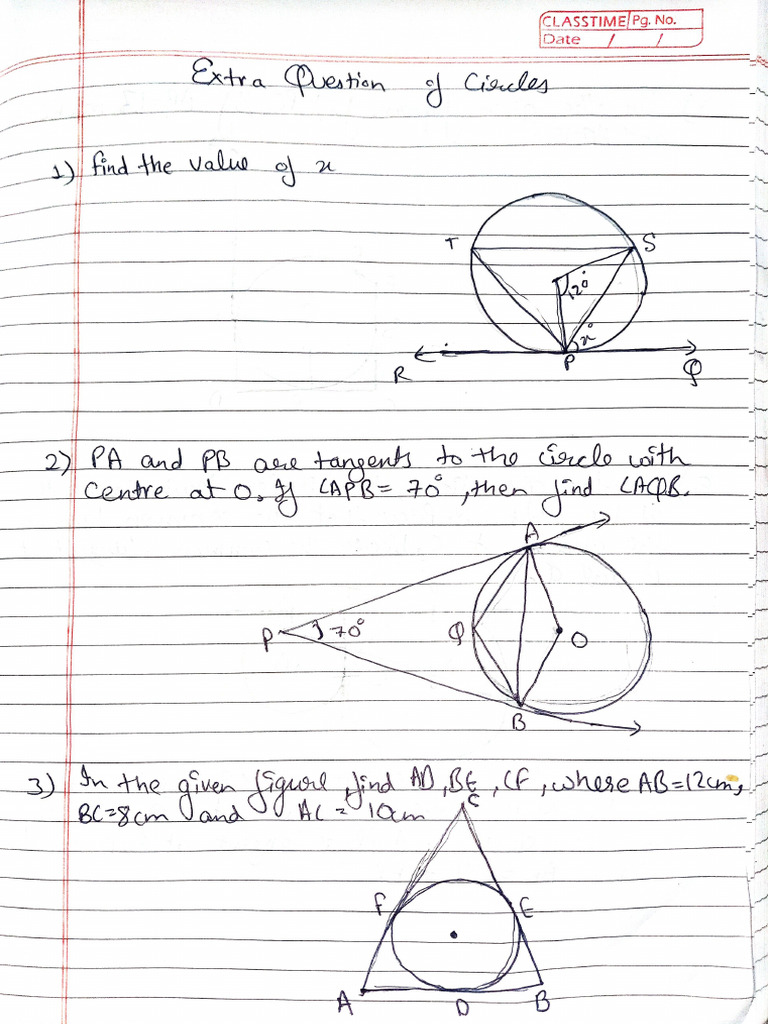 CLASSTIME Pg. No.
Date / /
Extra Question of Circles
1) find the value of x
T S
120°
x°
R P Q
2) PA and PB are tangents to the circle with
Centre at O. If ∠APB = 70°, then find ∠AQB.
A
P 70° Q O
B
3) In the given figure, find AD, BE, CF, where AB=12cm,
BC=8cm and AC = 10cm
C
F E
A D B